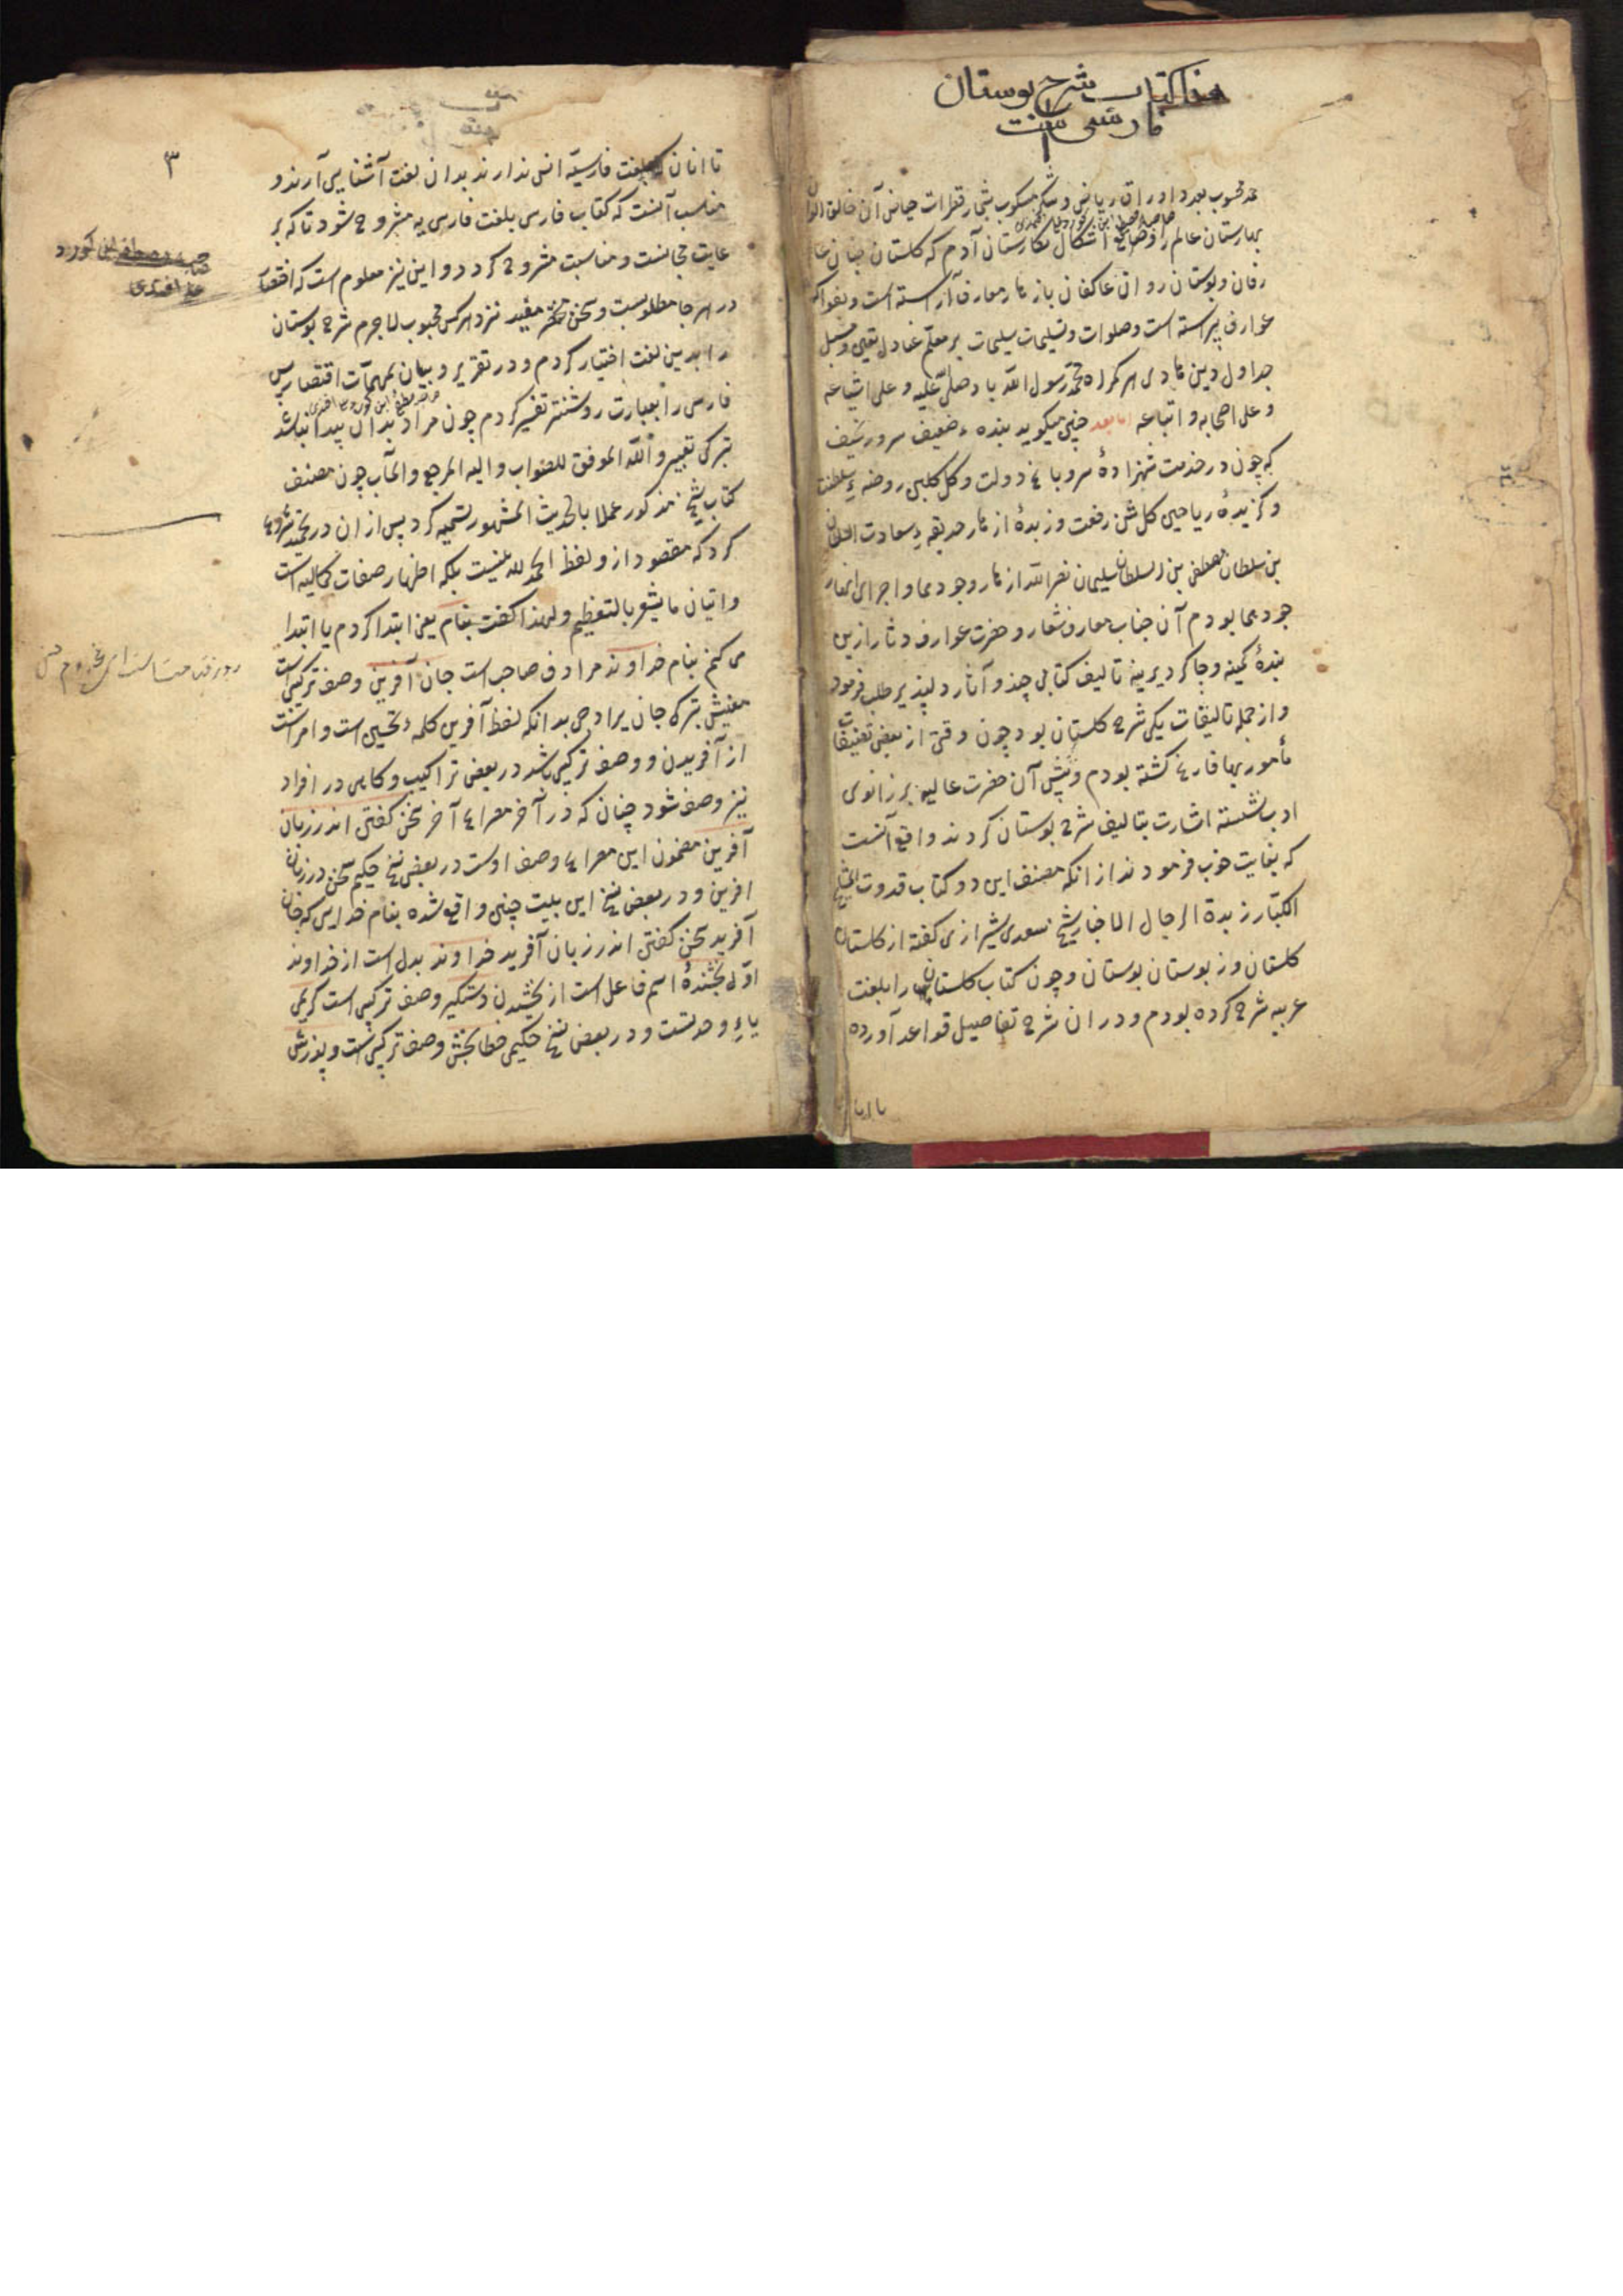 هذا کتاب شرح بوستان
فارسی است
حمد محسوب بعدد اوراق ریاض و شکر مسکوب بشمار قطرات حیاض آن خالق الوان
بهارستان عالم را و صانع اشکال نکارستان آدم که کلستان جنان عا
رفان و بوستان روان عاکفان بازهار معارف آراسته است و بفواکه
عوارف پیراسته است و صلوات و تسلیمات بر معلم عنادل یقین و
جداول دین هادی هر کمراه محمد رسول الله باد صلی علیه و علی اشیاعه
و علی اصحابه و اتباعه اما بعد چنین میکوید بنده ء ضعیف سروری نحیف
که چون در خدمت شهزادهٔ سرو باغ دولت و کل کلبن روضه ءِ سلطنت
و کزیدهٔ ریاحین کلشن رفعت و زبدهٔ ازهار حدیقه ءِ سعادت السلطان
بن سلطان مصطفی بن السلطان سلیمان نصر الله ازهار وجودهما و اجرای انهار
جودهما بودم آن جناب معارف شعار و حضرت عوارف دثار ازین
بندهٔ کمینه و چاکر دیرینه تالیف کتابی چند و آثار دلپذیر طلب فرمود
و از جمله تالیفات یکی شرح کلستان بود چون وقتی از بعض تصنیفات
مأمور بها فارغ کشته بودم و پیش آن حضرت عالیه بر زانوی
ادب نشسته اشارت بتالیف شرح بوستان کردند واقع آنست
که بغایت خوب فرمودند از انکه مصنف این دو کتاب قدوت المشایخ
الکبار زبدة الرجال الاخیار شیخ سعدی شیرازی کفته از کلستان
کلستان وز بوستان بوستان و چون کتاب کلستان را بلغت
عربیه شرح کرده بودم و در ان شرح تفاصیل قواعد آورده
تا انان
٣
تا انان که بلغت فارسیّه انس ندارند بدان لغت آشنایی آرند و
مناسب آنست که کتاب فارسی بلغت فارسی یه مشروح شود تا که بر
عایت مجانست و مناسبت مشروح کردد و این نیز معلوم است که اقتصار
در هر جا مطلوبست و سخن مختصر مفید نزد هر کس محبوب لاجرم شرح بوستان
را بدین لغت اختیار کردم و در تقریر و بیان بمهمات اقتصار پس
فارسی را بعبارت روشنتر تفسیر کردم چون مراد بدان پیدا نباشد
بترکی تعبیر و الله الموفق للصواب و الیه المرجع و المآب چون مصنف
کتاب شیخ مذکور عملا بالحدیث المشهور تسمیه کرد پس از ان در تحمید شروع
کرد که مقصود ازو لفظ الحمد لله نیست بلکه اظهار صفات کمالیه است
و اتیان ما یشعر بالتعظیم و لهذا کفت بنام یعنی ابتدا کردم یا ابتدا
می کنم بنام خداوند مرادف صاحب است جان آفرین وصف ترکیبی است
معنیش بترکی جان یرادجی بدانکه لفظ آفرین کلمه ء تحسین است و امر است
از آفریدن و وصف ترکیبی باشد در بعض تراکیب و کاهی در افراد
نیز وصف شود چنان که در آخر مصراع آخر سخن کفتن اندر زبان
آفرین مضمون این مصراع وصف اوست در بعض نسخ حکیم سخن در زبان
افرین و در بعض نسخ این بیت چنین واقع شده بنام خدایی که جان
آفرید سخن کفتن اندر زبان آفرید خداوند بدل است از خداوند
اوّل بخشندهٔ اسم فاعل است از بخشیدن دستکیر وصف ترکیبی است کریمی
یاءِ وحدتست و در بعض نسخ حکیمی خطا بخش وصف ترکیبی است و پوزش